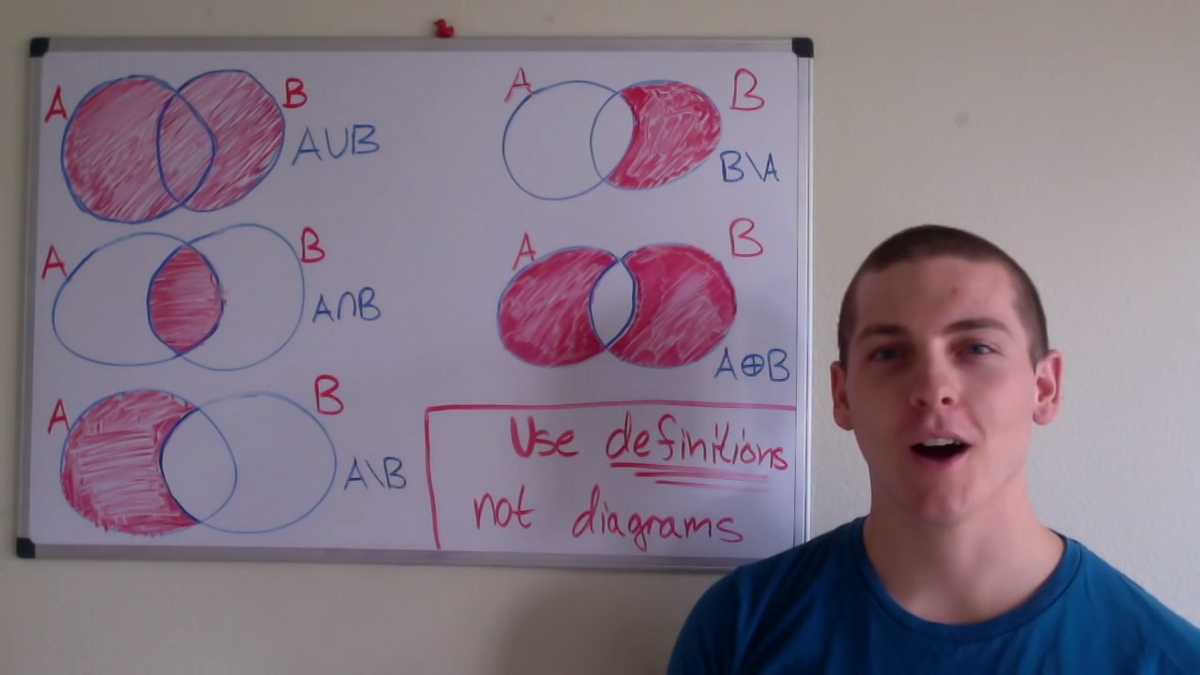 A B
A∪B
A B
A∩B
A B
A\B
A B
B\A
A B
A⊕B
Use definitions
not diagrams